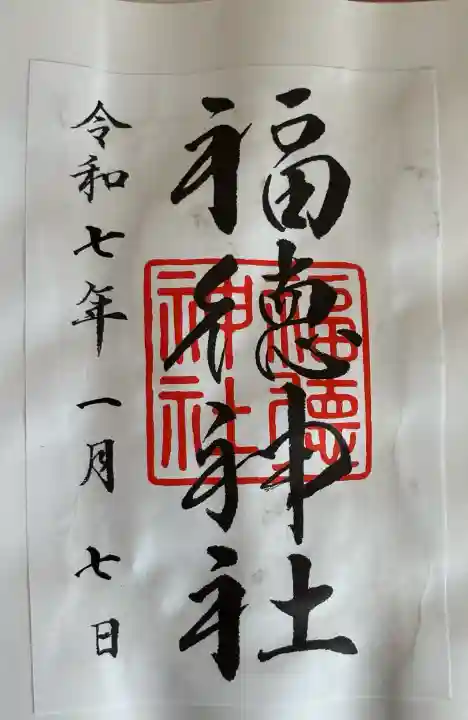 福德神社
福德
神社
令和七年一月七日